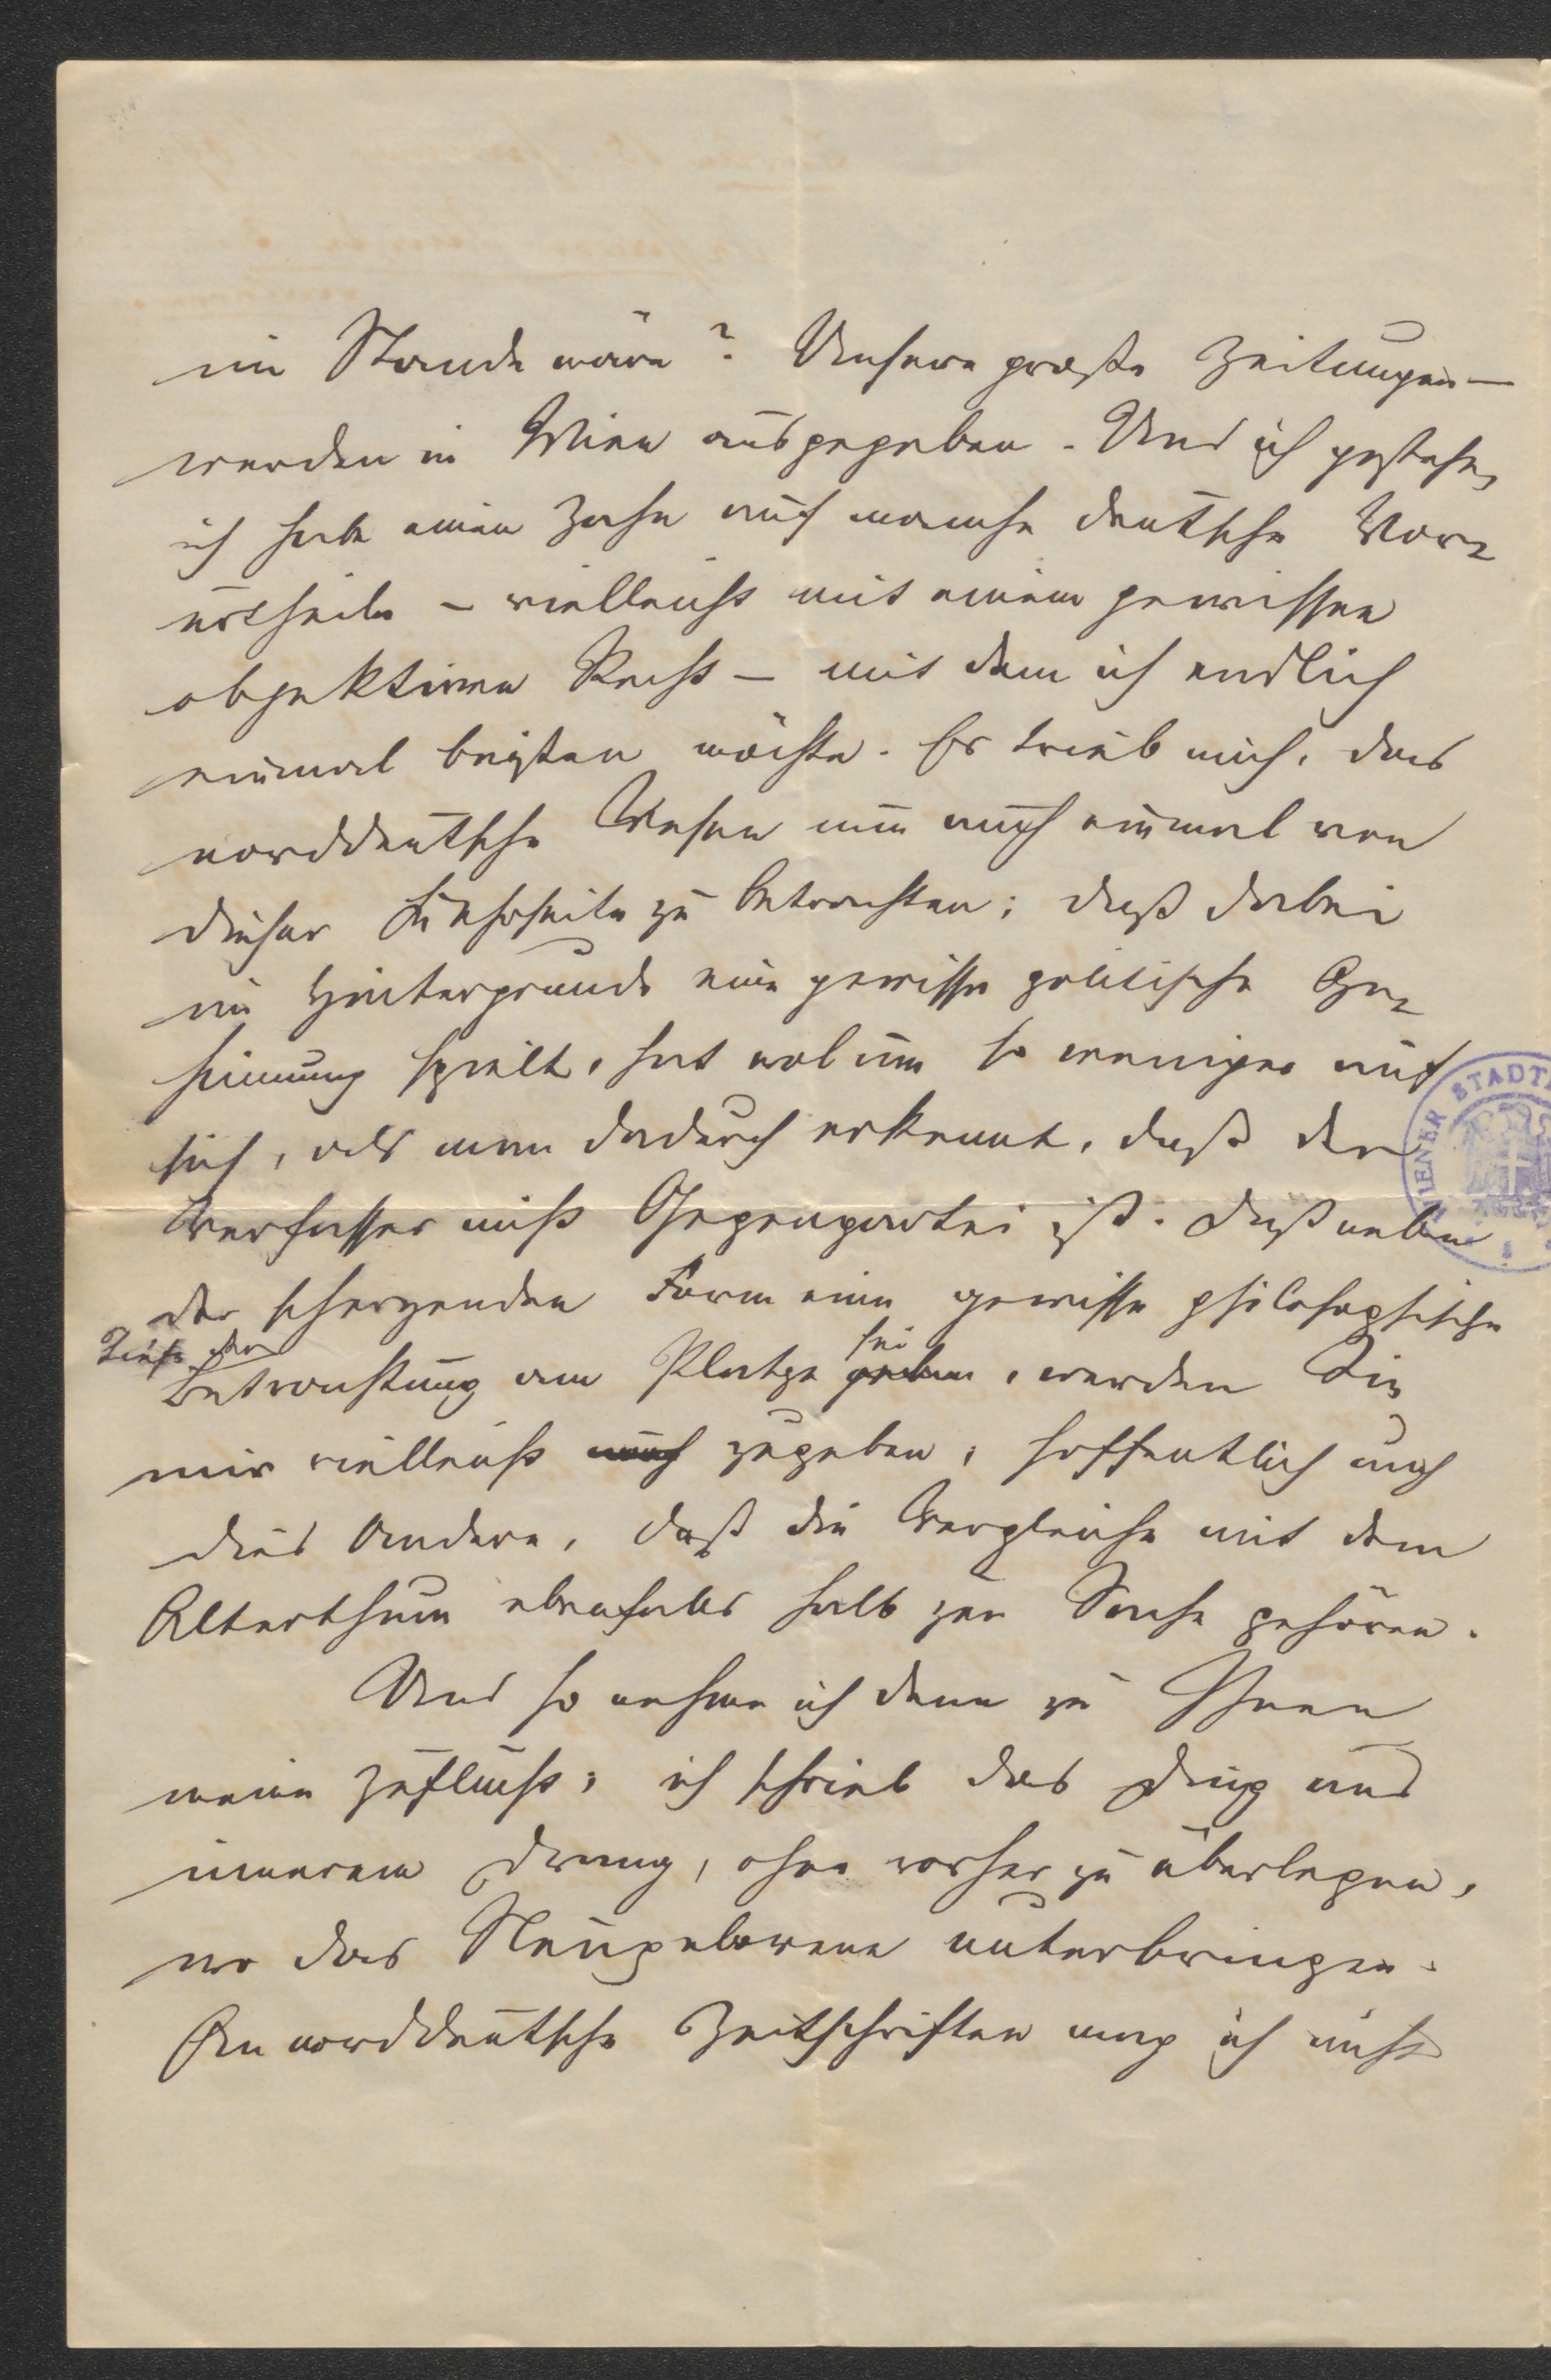 im Stande wäre? Unsere große Zeitungen –
werden in Wien ausgegeben. Und ich gestehe,
ich habe einen Zahn auf manche deutsche Vor-
urtheile – vielleicht mit einem gewissen
objektiven Recht – mit dem ich endlich
einmal beißen möchte. Es trieb mich, das
norddeutsche Wesen nun auch einmal von
dieser Kehrseite zu betrachten; daß dabei
im Hintergrunde eine gewisse politische Ge-
sinnung spielt, hat wol um so weniger auf
sich, als man dadurch erkennt, daß der
Verfasser nicht Gegenpartei ist. Daß neben
der scherzenden Form eine gewisse philosophische
Tiefe der
Betrachtung am Platze sei, werden Sie
mir vielleicht auch zugeben; hoffentlich auch
dies Andere, daß die Vergleiche mit dem
Alterthum ebenfalls halb zur Sache gehören.
Und so nehme ich denn zu Ihnen
meine Zuflucht; ich schrieb das Ding aus
innerem Drang, ohne vorher zu überlegen,
wo das Neugeborene unterbringen.
An norddeutsche Zeitschriften mag ich nicht
WIENER STADT